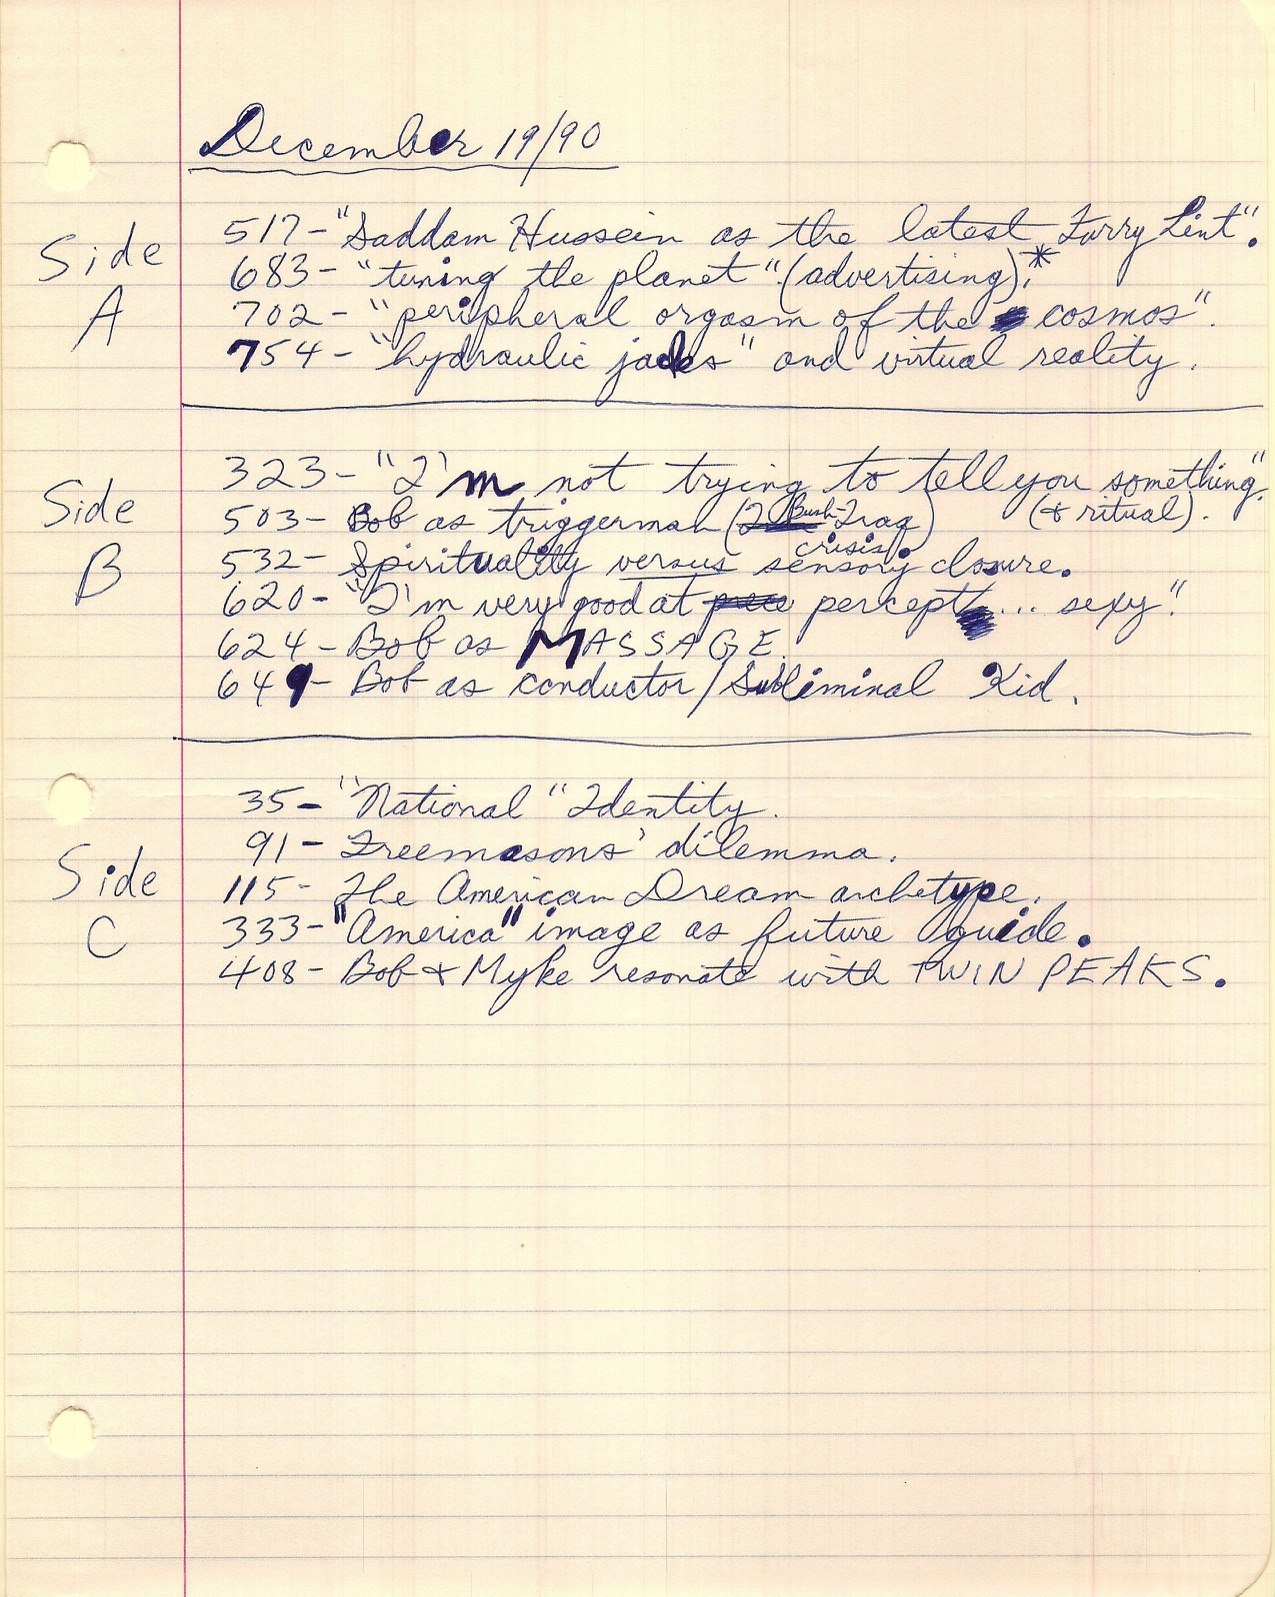 December 19/90
Side A
517- "Saddam Hussein as the latest Furry Lint".
683- "tuning the planet" (advertising).*
702- "peripheral orgasm of the cosmos".
754- "hydraulic jacks" and virtual reality.
Side B
323- "I'm not trying to tell you something"
(& ritual).
503- Bob as triggerman (Bush-Iraq crisis).
532- Spirituality versus sensory closure.
620- "I'm very good at percept... sexy".
624- Bob as MASSAGE.
649- Bob as conductor/Subliminal Kid.
Side C
35- "National" Identity.
91- Freemasons' dilemma.
115- The American Dream archetype.
333- "America" image as future guide.
408- Bob & Myke resonate with TWIN PEAKS.